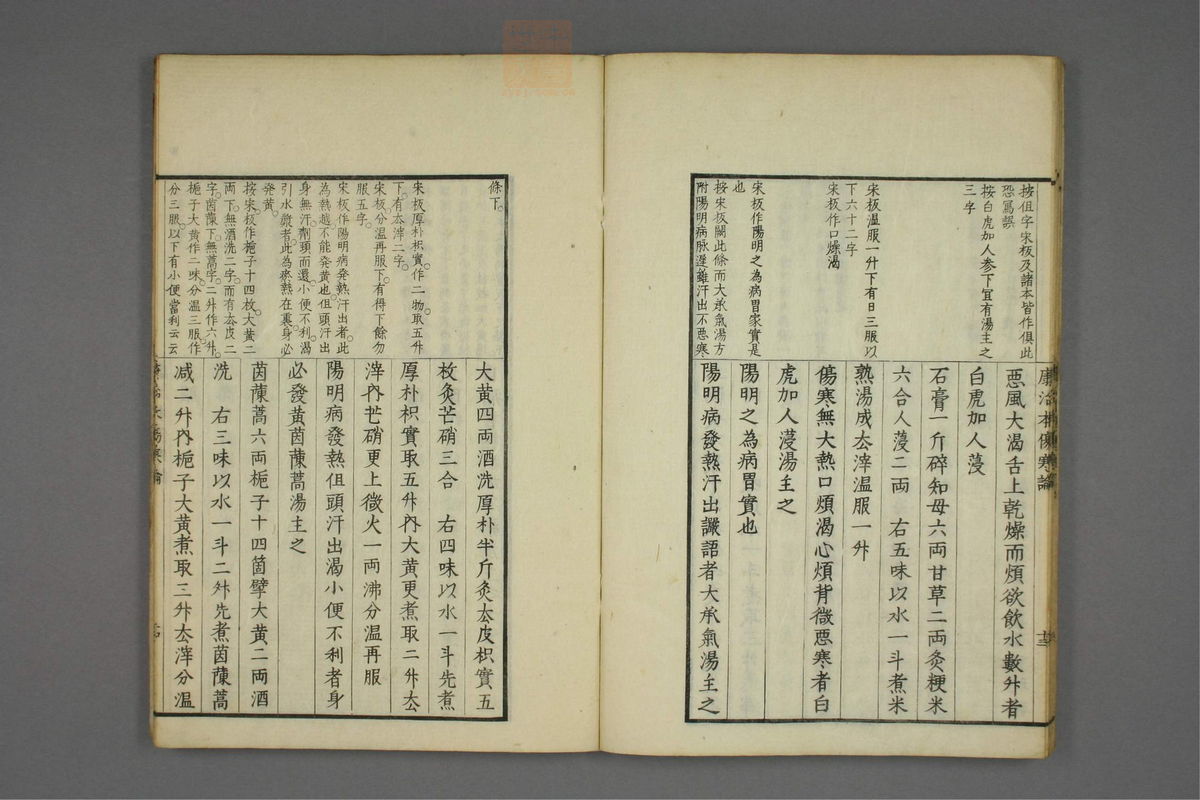 按伹字宋板及諸本皆作俱此
恐寫誤
按白虎加人参下冝有湯主之
三字
宋板温服一升下有日三服以
下六十二字
宋板作口燥渴
宋板作陽明之為病胃家實是
也
按宋板闕此條而大承氣湯方
附陽明病脉遲雖汗出不惡寒
康治本傷寒論
惡風大渴舌上乾燥而煩欲飲水數升者
白虎加人薓
石膏一斤碎知母六両甘草二両灸粳米
六合人薓二両　右五味以水一斗煮米
熟湯成厺滓温服一升
傷寒無大熱口煩渴心煩背微惡寒者白
虎加人薓湯主之
陽明之為病胃實也
陽明病發熱汗出讝語者大承氣湯主之
十三
條下
宋板厚朴枳實作二物取五升
下有厺滓二字
宋板分温再服下有得下餘勿
服五字
宋板作陽明病発熱汗出者此
為熱越不能発黄也伹頭汗出
身無汗劑頸而還小便不利渴
引水漿者此為瘀熱在裏身必
発黄
按宋板作梔子十四枚大黄二
両下無酒洗二字而有厺皮二
字茵蔯下無蒿字二升作六升
梔子大黄作二味分温三服作
分三服以下有小便當利云云
大黄四両酒洗厚朴半斤灸厺皮枳實五
枚灸芒硝三合　右四味以水一斗先煮
厚朴枳實取五升內大黄更煮取二升厺
滓內芒硝更上微火一両沸分温再服
陽明病發熱伹頭汗出渴小便不利者身
必發黄茵蔯蒿湯主之
茵蔯蒿六両梔子十四箇擘大黄二両酒
洗　右三味以水一斗二升先煮茵蔯蒿
減二升內梔子大黄煮取三升厺滓分温